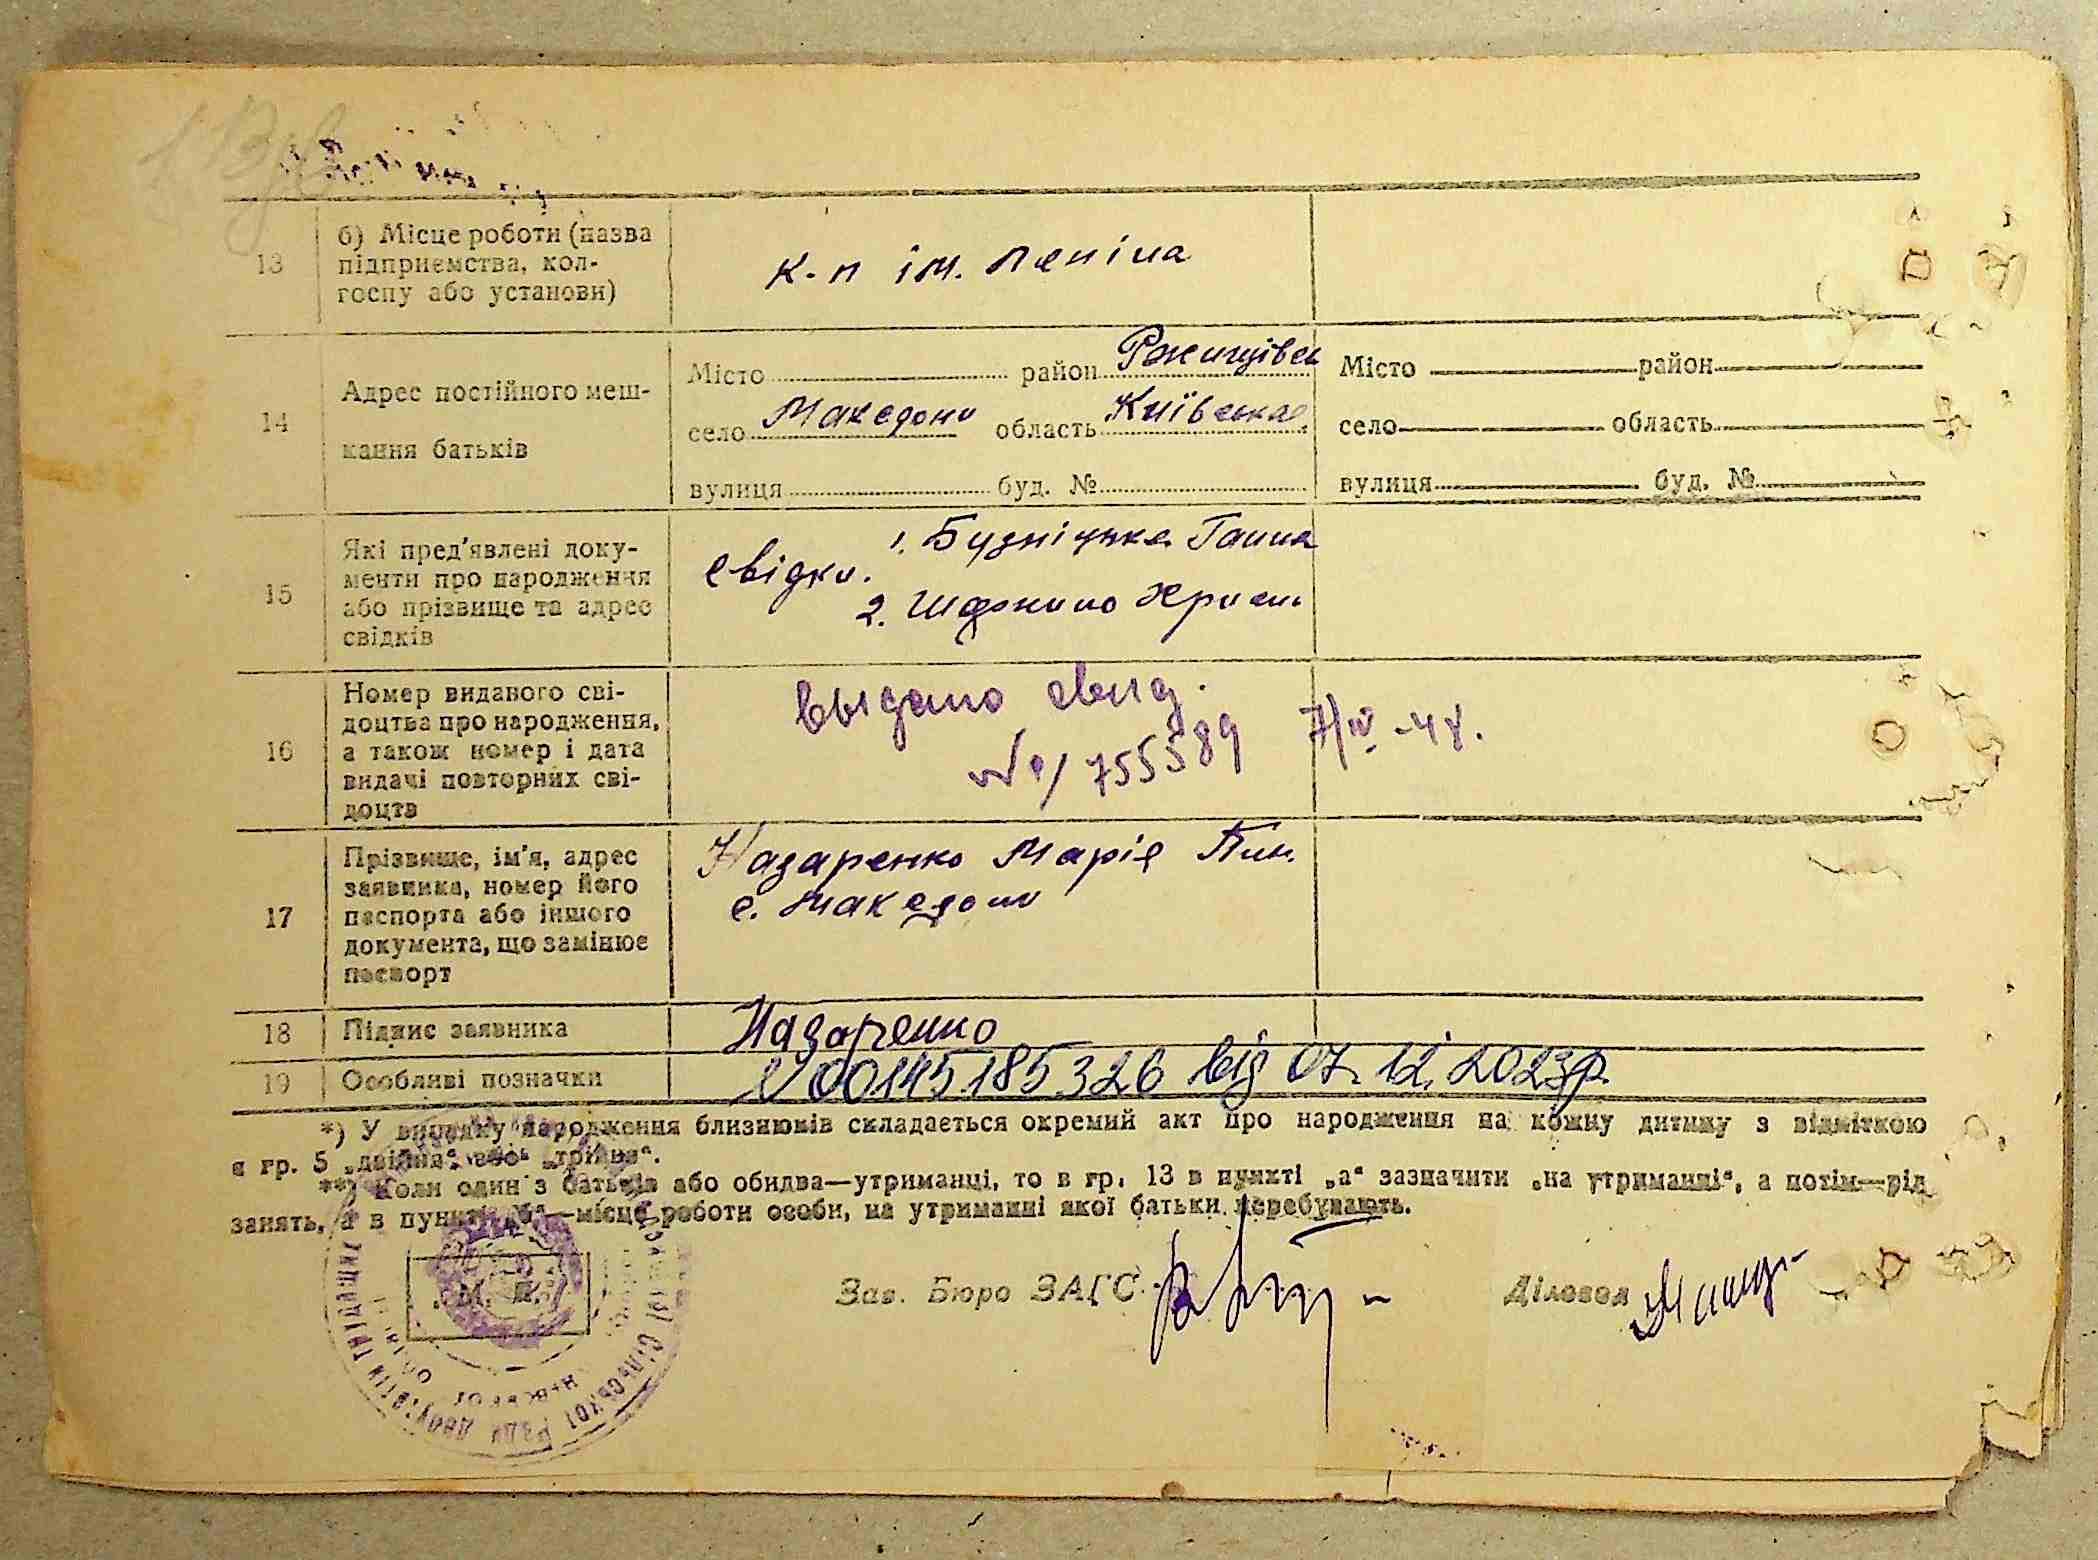 13
б) Місце роботи (назва
підприємства, кол-
госпу або установи)
к-п ім. Леніна
14
Адрес постійного меш-
кання батьків
Місто район Ржищівськ
село Македони область Київська
вулиця буд. №
Місто район
село область
вулиця буд. №
15
Які пред'явлені доку-
менти про народження
або прізвище та адрес
свідків
свідки. 1. Будніцька Ганна
2.
16
Номер виданого сві-
доцтва про народження,
а також номер і дата
видачі повторних сві-
доцтв
выдано свид.
№ 755589 7/IV-48.
17
Прізвище, ім'я, адрес
заявника, номер його
паспорта або іншого
документа, що замінює
паспорт
Назаренко Марія Пил.
с. Македони
18
Підпис заявника
Назаренко
19
Особливі позначки
00145185326 від 07.12.2023р.
*) У випадку народження близнюків складається окремий акт про народження на кожну дитину з відміткою
в гр. 5 „двійня“ або „трійня“.
**) Коли один з батьків або обидва—утриманці, то в гр. 13 в пункті „а“ зазначити „на утриманні“, а потім—рід
занять, а в пункті „б“—місце роботи особи, на утриманні якої батьки перебувають.
М. П.
Зав. Бюро ЗАГС
Діловод
сільської Ради депутатів трудящих